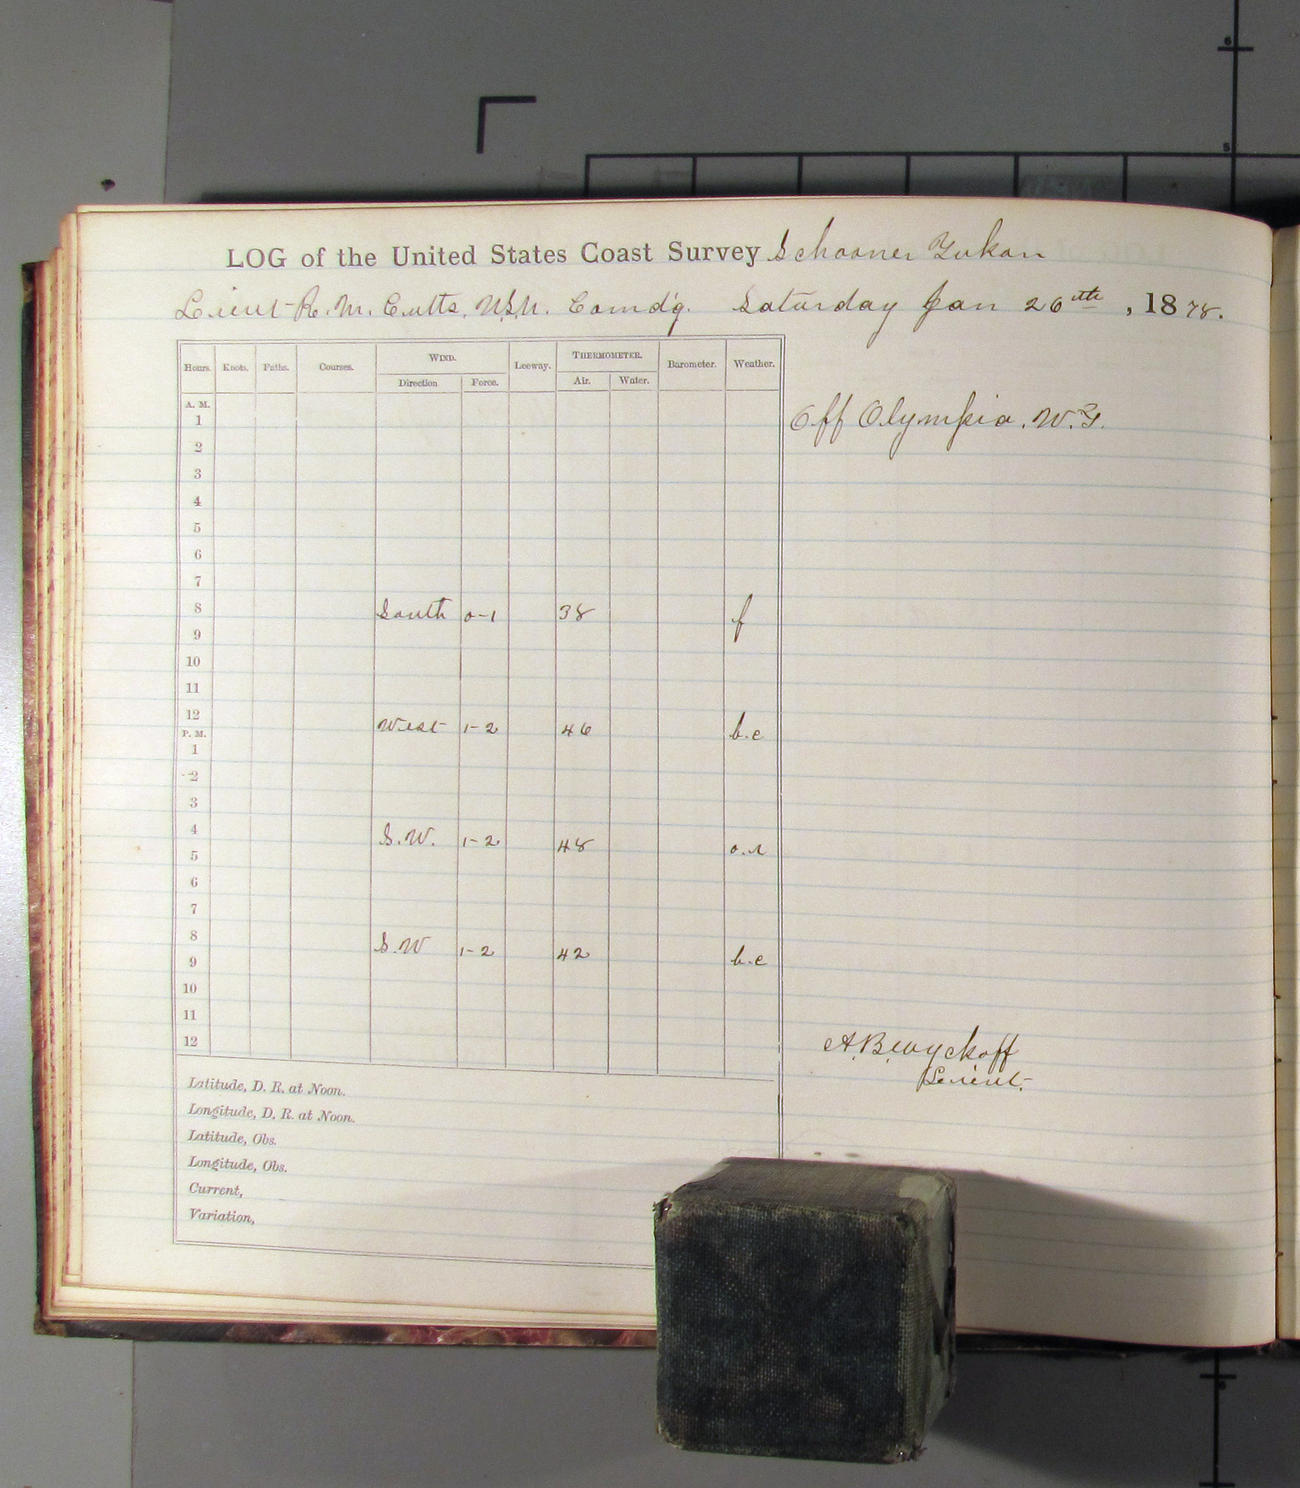 LOG of the United States Coast Survey Schooner Yukon
Lieut R. M. Cutts, U.S.N. Comdg. Saturday Jan 26th, 1878.
Hours. Knots. Faths. Courses. WIND. Leeway. THERMOMETER. Barometer. Weather.
Direction Force. Air. Water.
A. M.
1 Off Olympia, W.T.
2
3
4
5
6
7
8 South 0-1 38 f
9
10
11
12 West 1-2 46 b.c
P. M.
1
2
3
4 S.W. 1-2 48 o.r
5
6
7
8 S.W 1-2 42 b.c
9
10
11
12
A.B. Wyckoff
Lieut.
Latitude, D. R. at Noon.
Longitude, D. R. at Noon.
Latitude, Obs.
Longitude, Obs.
Current,
Variation,
6
5
6